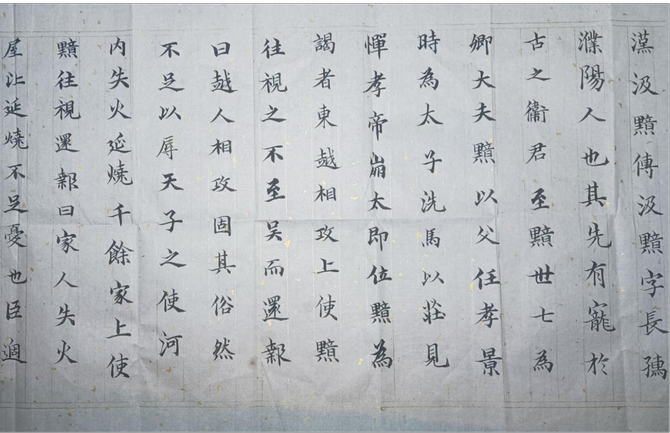 漢汲黯傳汲黯字長孺
濮陽人也其先有寵於
古之衞君至黯世七為
卿大夫黯以父任孝景
時為太子洗馬以莊見
憚孝帝崩太即位黯為
謁者東越相攻上使黯
往視之不至吳而還報
曰越人相攻固其俗然
不足以辱天子之使河
内失火延燒千餘家上使
黯往視還報曰家人失火
屋比延燒不足憂也臣過